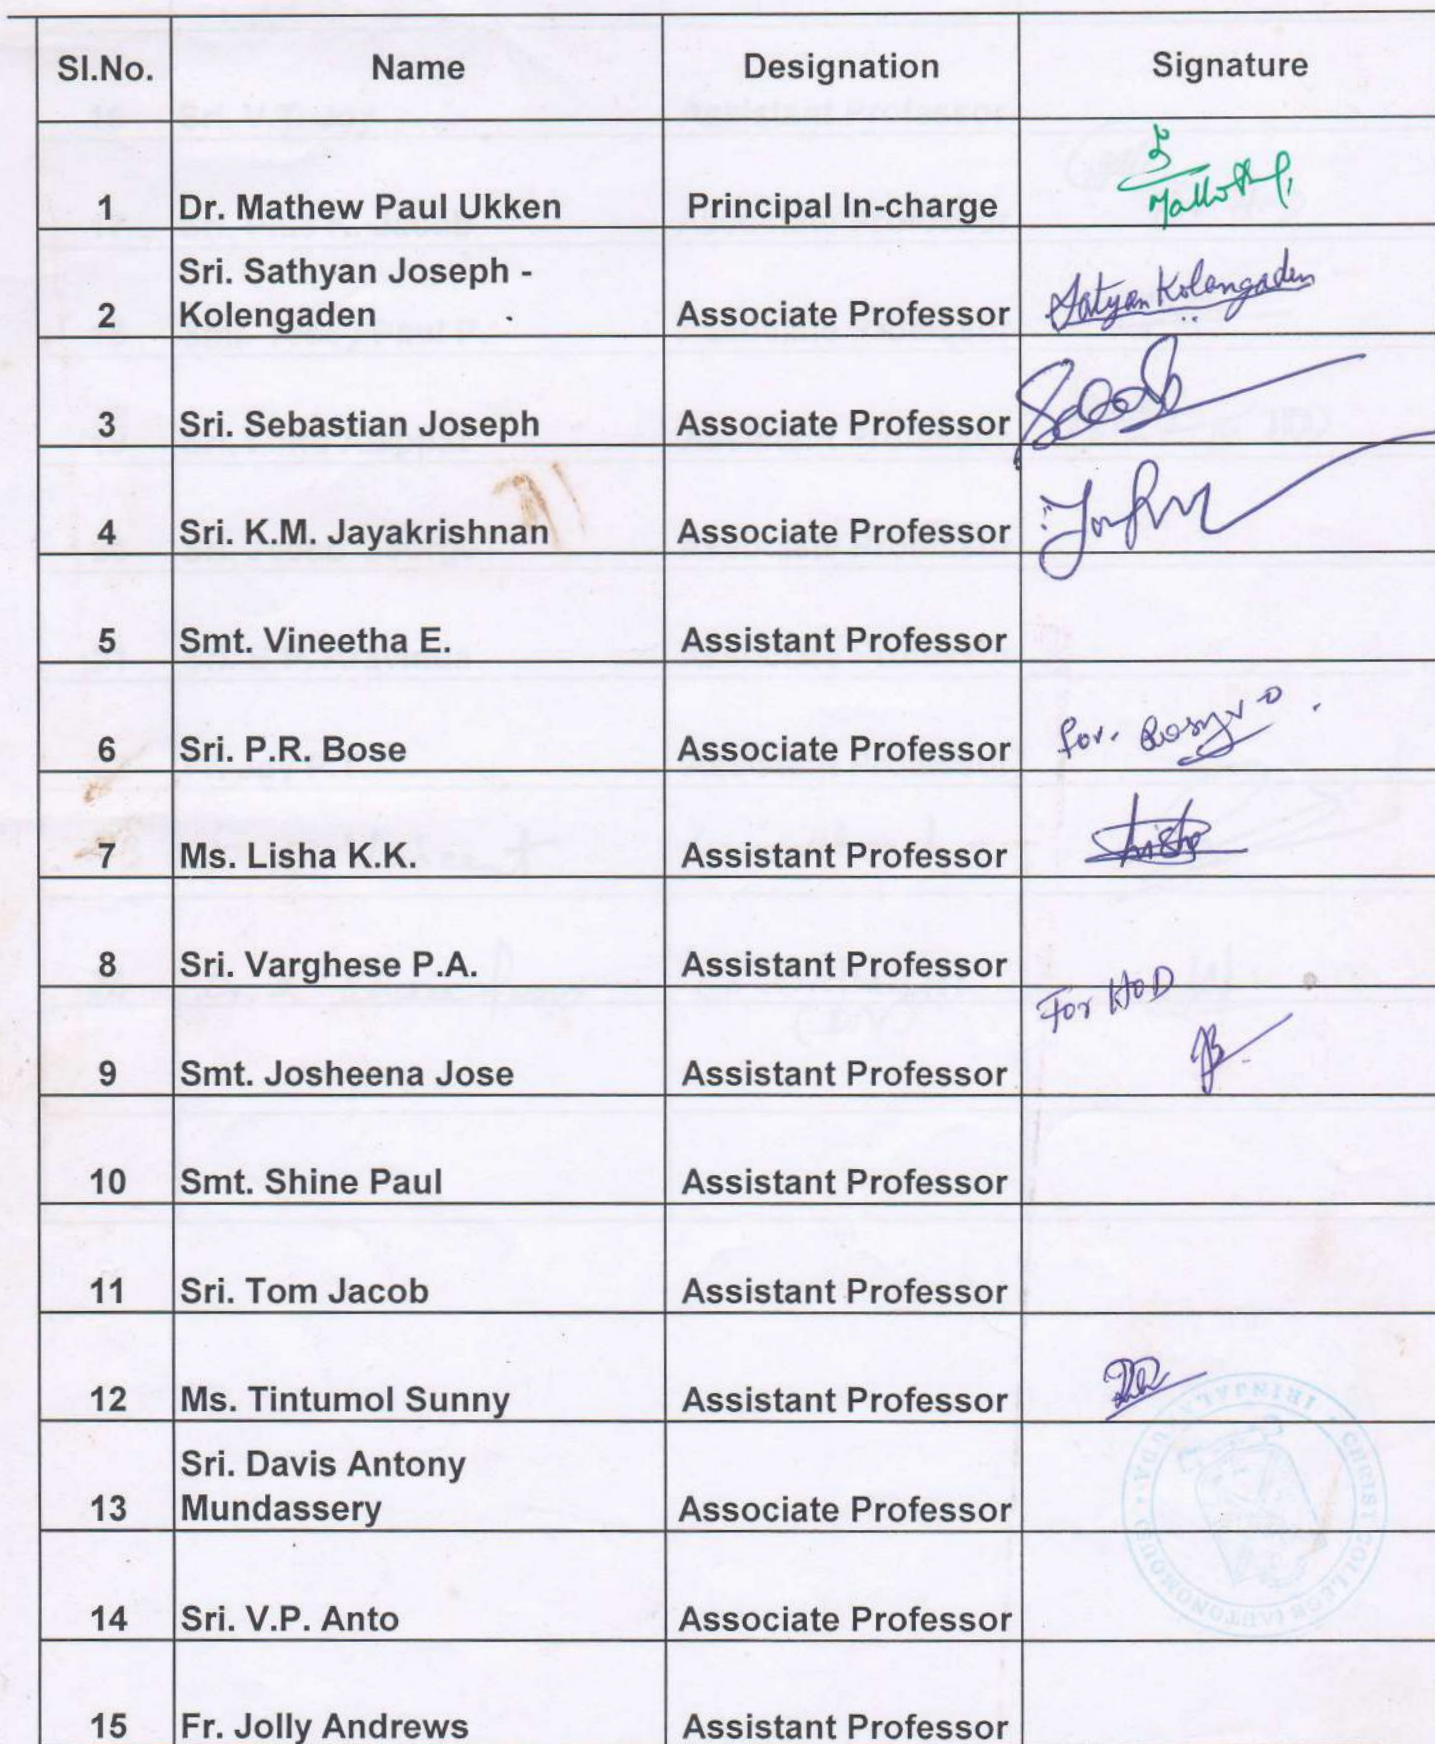 Sl.No. Name Designation Signature
1 Dr. Mathew Paul Ukken Principal In-charge
Sri. Sathyan Joseph -
2 Kolengaden Associate Professor Satyan Kolengaden
3 Sri. Sebastian Joseph Associate Professor
4 Sri. K.M. Jayakrishnan Associate Professor
5 Smt. Vineetha E. Assistant Professor
6 Sri. P.R. Bose Associate Professor For.
7 Ms. Lisha K.K. Assistant Professor
8 Sri. Varghese P.A. Assistant Professor
For HOD
9 Smt. Josheena Jose Assistant Professor
10 Smt. Shine Paul Assistant Professor
11 Sri. Tom Jacob Assistant Professor
12 Ms. Tintumol Sunny Assistant Professor
Sri. Davis Antony
13 Mundassery Associate Professor
CHRIST COLLEGE (AUTONOMOUS) • IRINJALAKUDA •
14 Sri. V.P. Anto Associate Professor
15 Fr. Jolly Andrews Assistant Professor